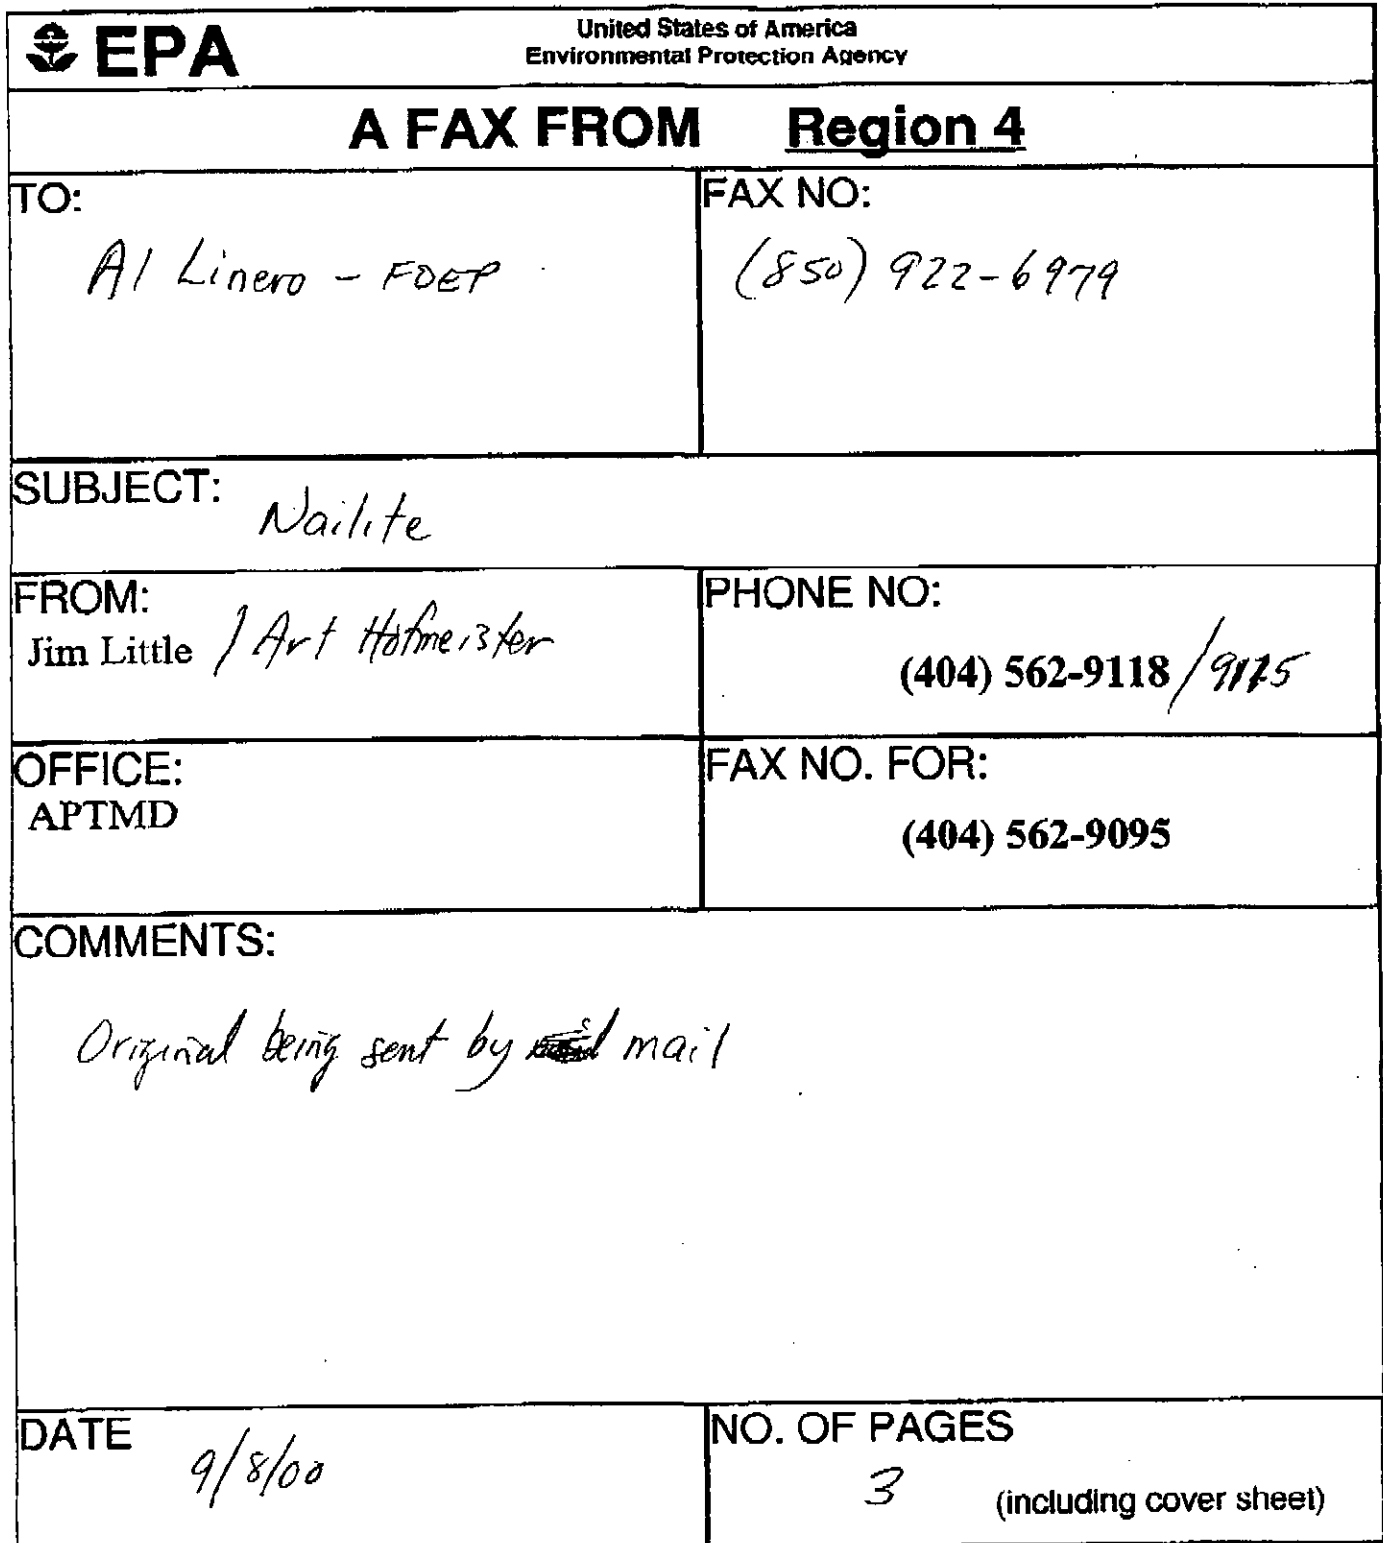 EPA
United States of America
Environmental Protection Agency
A FAX FROM Region 4
TO:
Al Linero - FDEP
FAX NO:
(850) 922-6979
SUBJECT:
Nailite
FROM:
Jim Little / Art Hofmeister
PHONE NO:
(404) 562-9118 / 9175
OFFICE:
APTMD
FAX NO. FOR:
(404) 562-9095
COMMENTS:
Original being sent by mail
DATE
9/8/00
NO. OF PAGES
3 (including cover sheet)